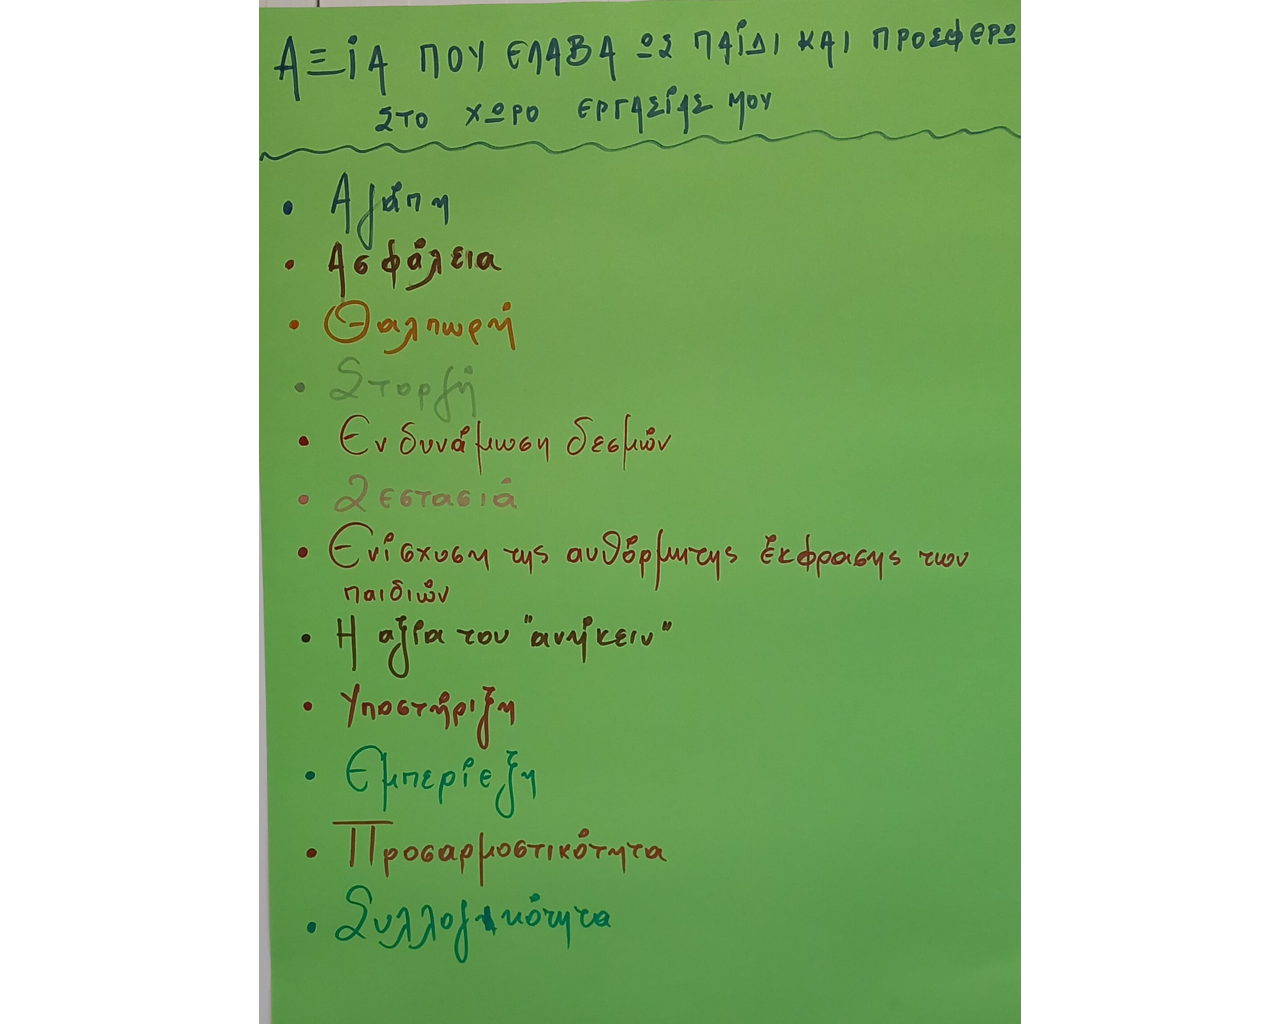 ΑΞΙΑ ΠΟΥ ΕΛΑΒΑ ΩΣ ΠΑΙΔΙ ΚΑΙ ΠΡΟΣΦΕΡΩ
ΣΤΟ ΧΩΡΟ ΕΡΓΑΣΙΑΣ ΜΟΥ
• Αγάπη
• Ασφάλεια
• Θαλπωρή
• Στοργή
• Ενδυνάμωση δεσμών
• Ζεστασιά
• Ενίσχυση της αυθόρμητης έκφρασης των
παιδιών
• Η αξία του "ανήκειν"
• Υποστήριξη
• Εμπερίεξη
• Προσαρμοστικότητα
• Συλλογικότητα